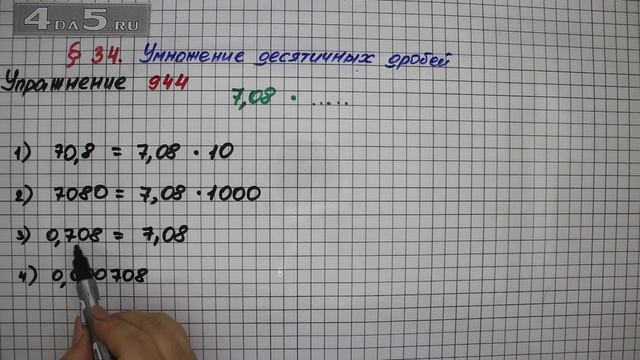 4DA5.RU
§ 34. Умножение десятичных дробей
Упражнение 944
7,08 · .....
1) 70,8 = 7,08 · 10
2) 7080 = 7,08 · 1000
3) 0,708 = 7,08
4)